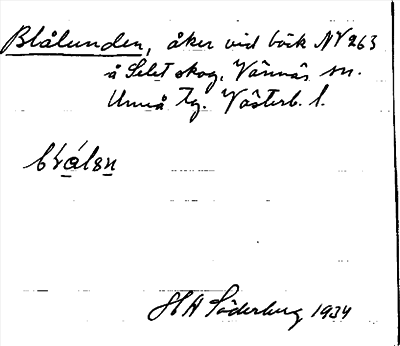 Blålunden, åker vid bäck NV 263
å Selet skog, Vännäs sn.
Umeå tg. Västerb. l.
HA Söderberg 1934